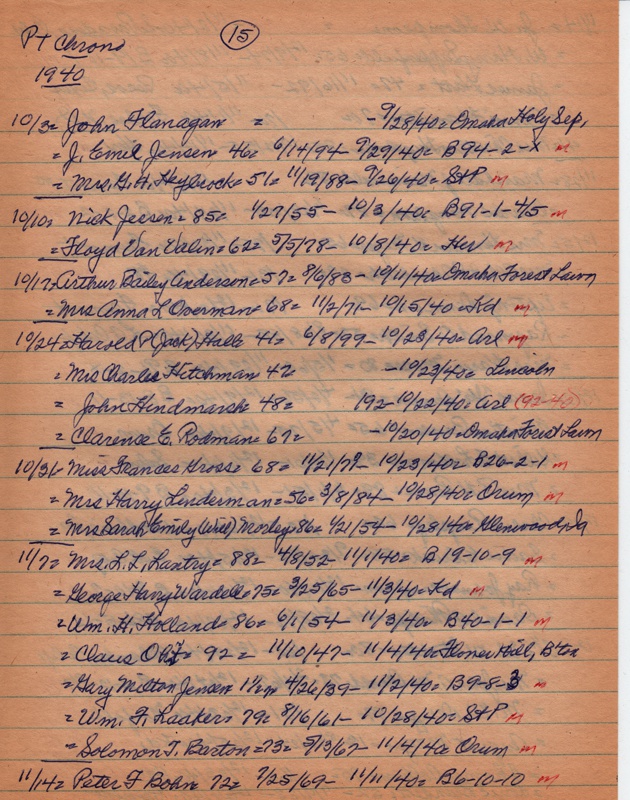 Pt Chrono 15
1940
10/3= John Flanagan = - 9/28/40= Omaha Holy Sep.
= J. Emil Jensen 46= 6/14/94- 9/29/40= B94-2-X m
= Mrs. G. H. Heybrock= 51= 11/19/88- 9/26/40= S+P m
10/10= Nick Jessen= 85= 1/27/55- 10/3/40= B91-1-4/5 m
= Floyd Van Valin= 62= 5/5/78- 10/8/40= Her m
10/17= Arthur Bailey Anderson= 57= 8/6/83- 10/11/40= Omaha Forest Lawn
= Mrs Anna L Overman= 68= 11/2/71- 10/15/40= Kd m
10/24= Harold P (Jack) Hall= 41= 6/8/99- 10/23/40= Arl m
= Mrs Charles Hitchman 47= - 10/23/40= Lincoln
= John Hindmarsh 48= 192- 10/22/40= Arl (92-40)
= Clarence E. Rodman= 67= - 10/20/40= Omaha Forest Lawn
10/31= Miss Frances Gross= 68= 11/21/7?- 10/23/40= B26-2-1 m
= Mrs Harry Linderman= 56= 3/8/84- 10/28/40= Orum m
= Mrs Sarah Emily (Will) Morley= 86= 1/21/54- 10/28/40= Glenwood, Ia
11/7= Mrs. L. L. Lantry= 88= 4/8/52- 11/1/40= B19-10-9 m
= George Harry Wardell= 75= 3/25/65- 11/3/40= Kd m
= Wm. H. Holland= 86= 6/1/54- 11/3/40= B40-1-1 m
= Claus Oft= 92= 11/10/47- 11/4/40= Flower Hill, B'ton
= Gary Milton Jensen 1½m 4/26/39- 11/2/40= B9-8-3 m
= Wm. F. Laakers 79= 8/16/61- 10/28/40= S+P m
= Solomon T. Barton= 73= 5/13/67- 11/4/40= Orum m
11/14= Peter F Bohn 72= 7/25/69- 11/11/40= B6-10-10 m